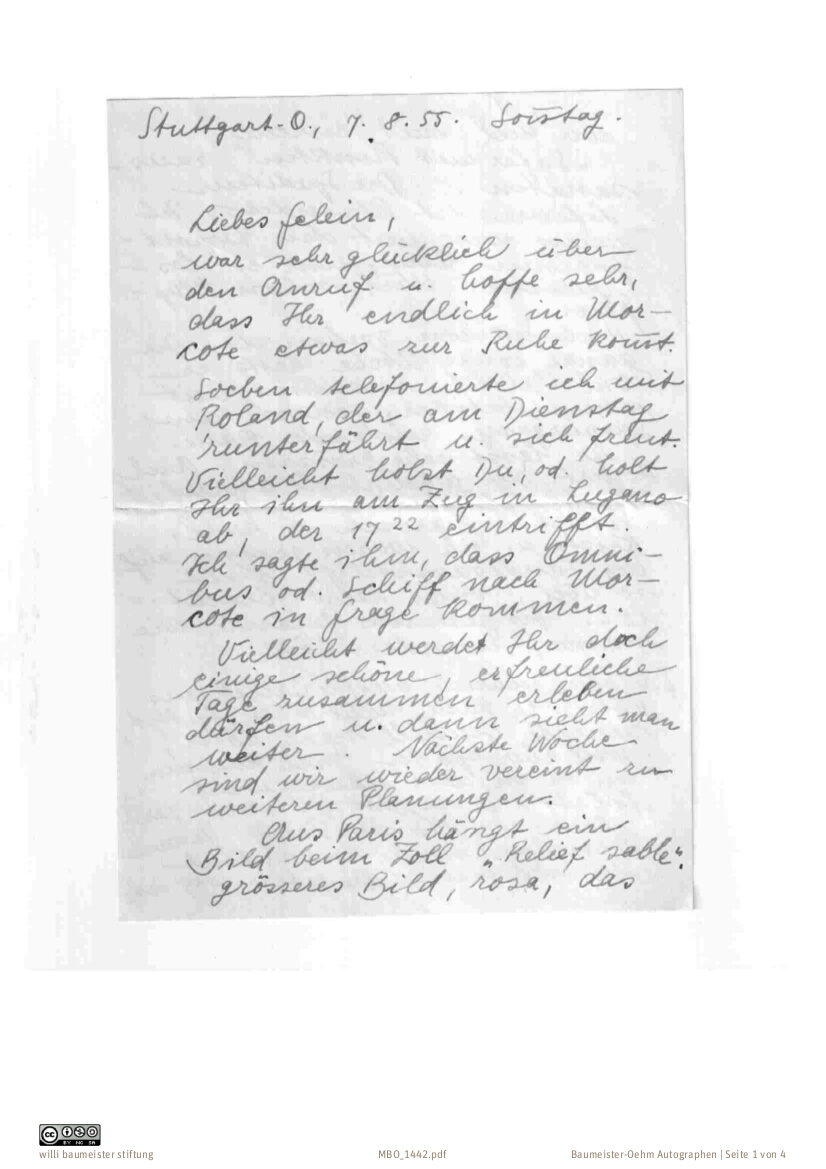 Stuttgart-O., 7. 8. 55. Soñtag.
Liebes Felein,
war sehr glücklich über
den Anruf u. hoffe sehr,
dass Ihr endlich in Mor-
cote etwas zur Ruhe kom̄t.
Soeben telefonierte ich mit
Roland, der am Dienstag
'runterfährt u. sich freut.
Vielleicht holst Du, od. holt
Ihr ihn am Zug in Lugano
ab, der 17 22 eintrifft.
Ich sagte ihm, dass Omni-
bus od. Schiff nach Mor-
cote in frage kommen.
Vielleicht werdet Ihr doch
einige schöne, erfreuliche
Tage zusammen erleben
dürfen u. dann sieht man
weiter. Nächste Woche
sind wir wieder vereint zu
weiteren Planungen.
Aus Paris hängt ein
Bild beim Zoll „Relief sable".
grösseres Bild, rosa, das
CC BY NC SA
willi baumeister stiftung MBO_1442.pdf Baumeister-Oehm Autographen | Seite 1 von 4